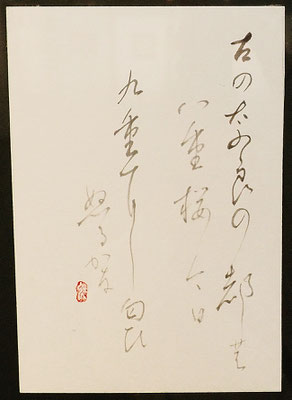 古の奈良の都の
八重桜今日
九重に匂ひ
ぬるかな